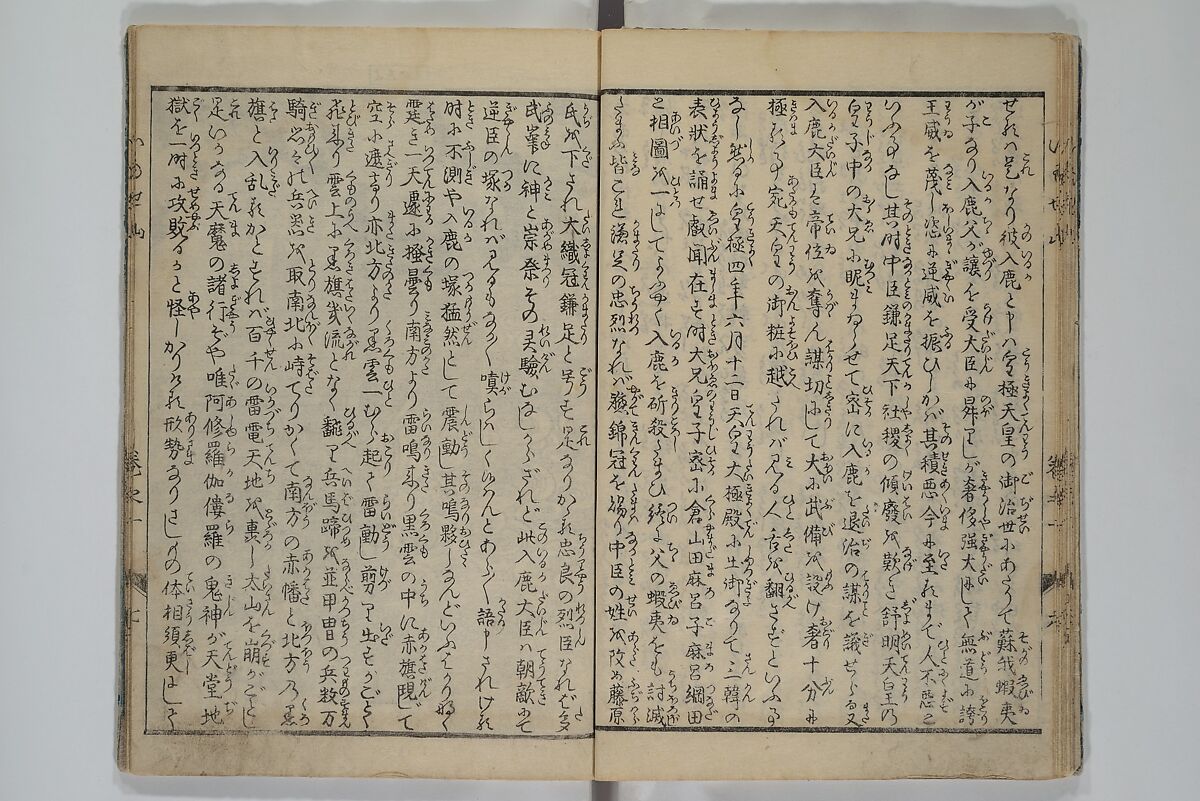 せれハ是なり彼入鹿と申ハ皇極天皇の御治世にあたりて蘇我蝦夷
が子なり入鹿父が譲を受大臣に昇りしが奢侈強大にして無道に誇
王威を蔑し恣に逆威を振ひしかバ其積悪今に至れまで人不惡と
いふ事なし其時中臣鎌足天下社稷の傾廢を歎き舒明天皇乃
皇子中の大兄に昵まゐらせて密に入鹿を退治の謀を議せらる又
入鹿大臣も帝位を奪ん謀切にして大に武備を設け奢十分に
極れる事宛天皇の御粧に越たれバ見る人舌を翻さずといふ事
なし然るに皇極四年六月十二日天皇大極殿に出御なりて三韓の
表状を誦せ叡聞在す時大兄皇子密に倉山田麻呂子麻呂綱田
と相圖を一にしてよふやく入鹿を斫殺たまひ続て父の蝦夷をも討滅
たまふ皆これ鎌足の忠烈なれバ錦冠を賜り中臣の姓を改め藤原
氏を下され大織冠鎌足と号す是なりかゝる忠良の烈臣なれば多
武峯に神と崇祭その灵驗むなしからざれど此入鹿大臣ハ朝敵にて
逆臣の塚なれバ見るもなく嗔らはしくゆんとあらく語申されける
時に不測や入鹿の塚猛然として震動し其鳴夥しなんどいふはかりなく
霎き一天遽に掻曇り南方より雷鳴来り黒雲の中に赤旗現じて
空に遮る亦北方より黒雲一むら起て雷動し剪り出すがごとく
飛来り雲上に黒旗弐流となく飜り兵馬蹄を並甲冑の兵数万
騎思々の兵器を取南北に峙てりかくて南方の赤幡と北方乃黒
旗と入乱るかとすれバ百千の雷電天地を裏し太山を崩がごとし
是いかなる天魔の諸行ぞや唯阿修羅伽僂羅の鬼神が天堂地
獄を一時に攻敗るかと怪しかりける形勢なりさしもの体相須臾にして